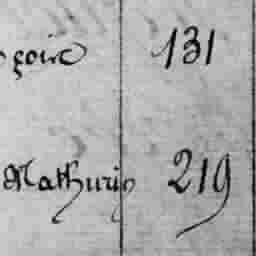 goire 131
Mathurin 219